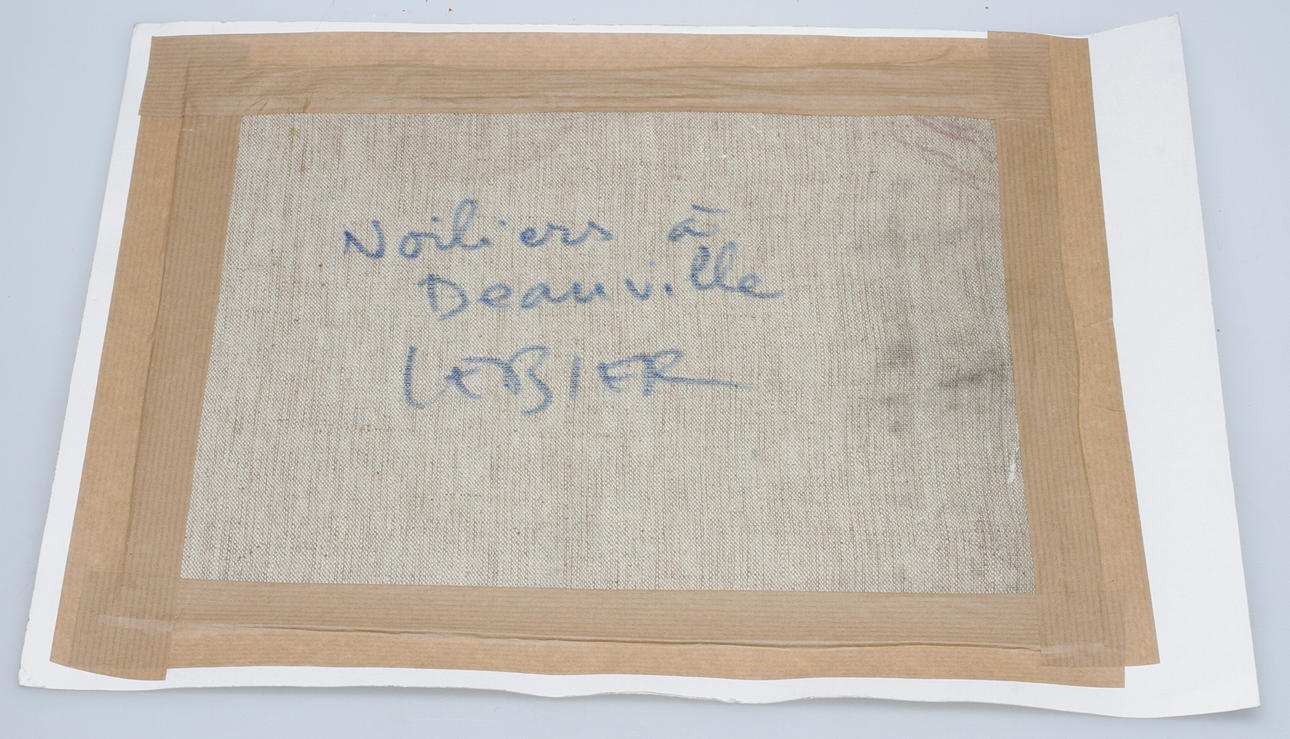 Voiliers à
Deauville
LEBIER